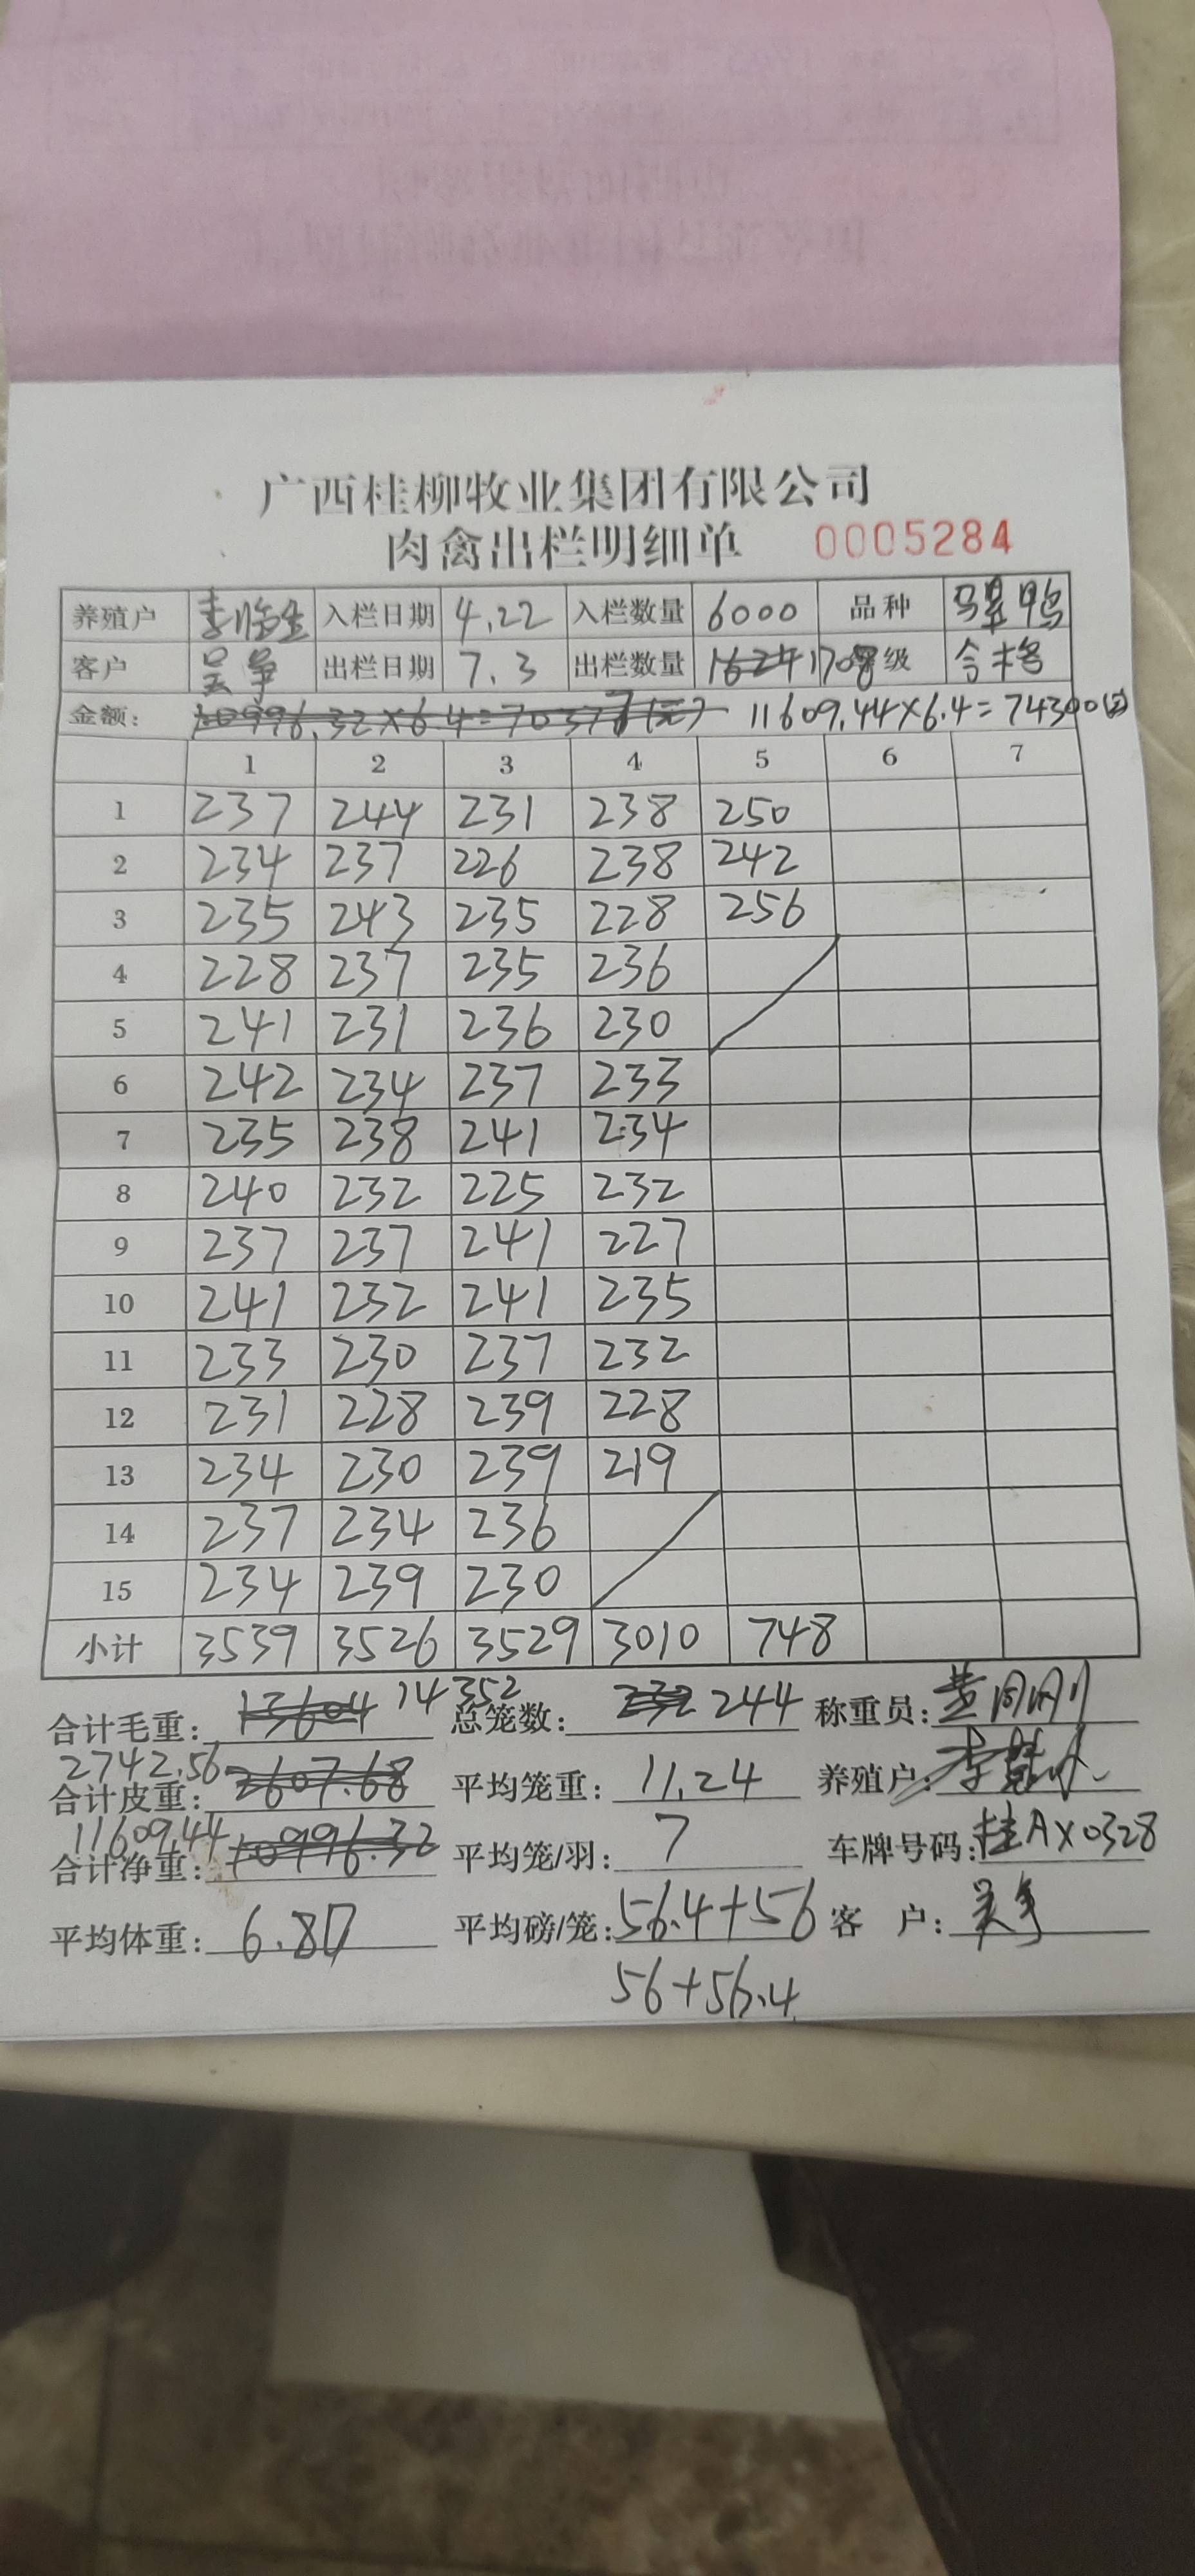 广西桂柳牧业集团有限公司
肉禽出栏明细单 0005284
养殖户 李 入栏日期 4.22 入栏数量 6000 品种 鸭
客户 吴争 出栏日期 7.3 出栏数量 1624 1708 级 合格
金额: 10996.32×6.4=70376(元) 11609.44×6.4=74300(元)
1 2 3 4 5 6 7
1 237 244 231 238 250
2 234 237 226 238 242
3 235 243 235 228 256
4 228 237 235 236
5 241 231 236 230
6 242 234 237 233
7 235 238 241 234
8 240 232 225 232
9 237 237 241 227
10 241 232 241 235
11 233 230 237 232
12 231 228 239 228
13 234 230 239 219
14 237 234 236
15 234 239 230
小计 3539 3526 3529 3010 748
合计毛重: 13604 14352 总笼数: 232 244 称重员: 黄
合计皮重: 2607.68 2742.56 平均笼重: 11.24 养殖户: 李
合计净重: 10996.32 11609.44 平均笼/羽: 7 车牌号码: 桂AX0328
平均体重: 6.80 平均磅/笼: 56.4+56 客户: 吴争
56+56.4